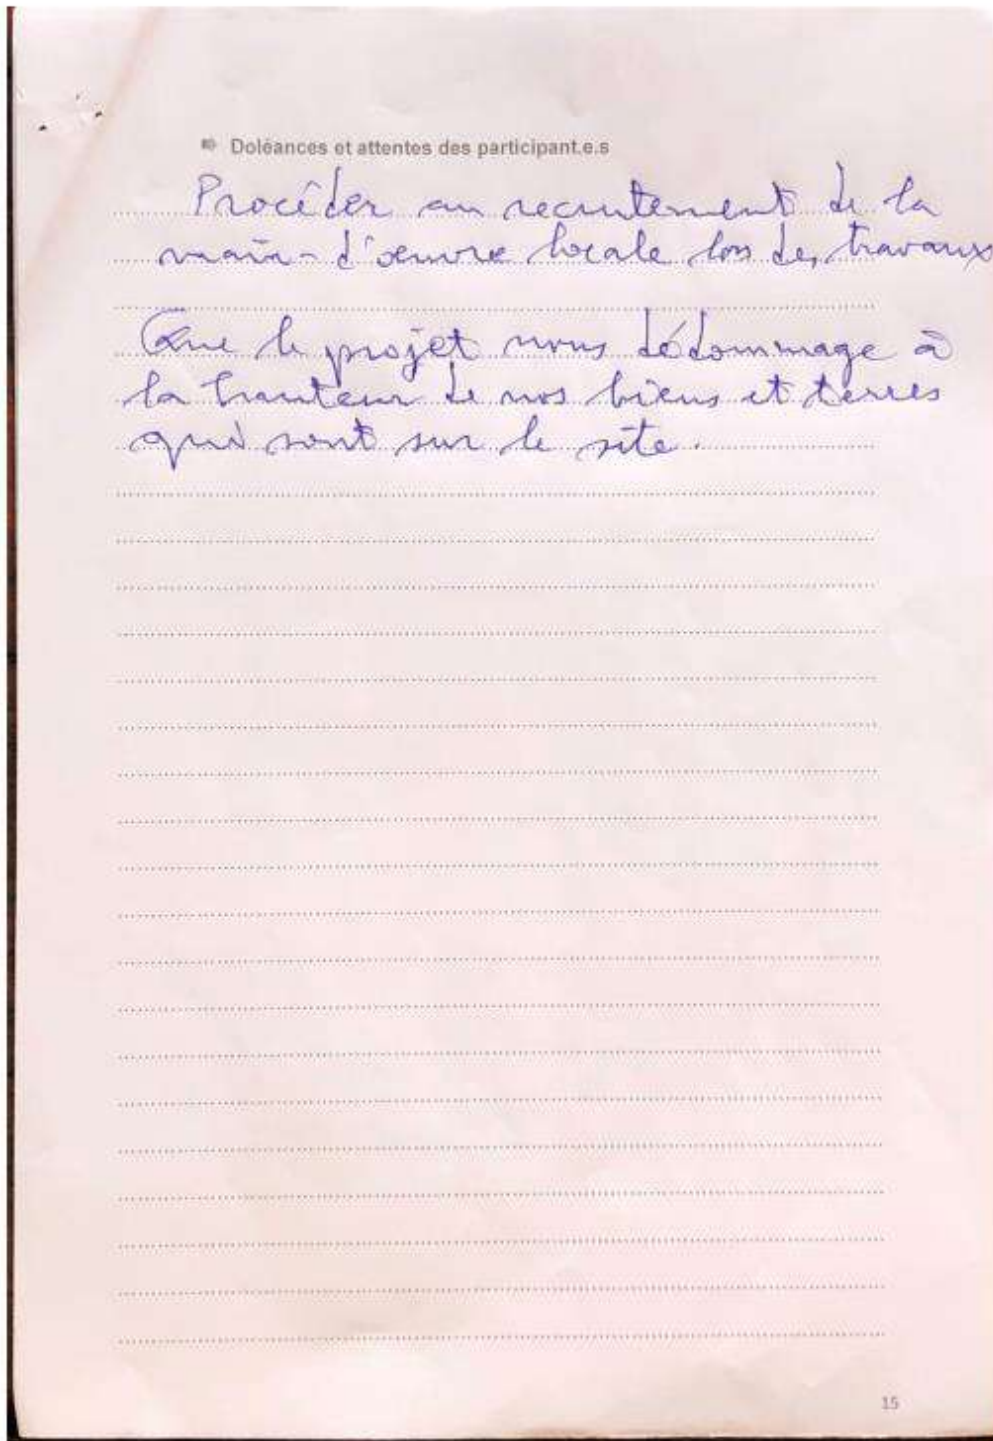 ➠ Doléances et attentes des participant.e.s
Procéder au recrutement de la
main-d'œuvre locale lors des travaux
Que le projet nous dédommage à
la hauteur de nos biens et terres
qui sont sur le site.
15